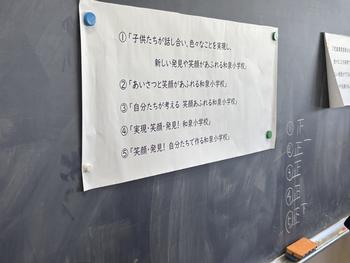 ①「子供たちが話し合い、色々なことを実現し、
新しい発見や笑顔があふれる和泉小学校」
②「あいさつと笑顔があふれる和泉小学校」
③「自分たちが考える 笑顔あふれる和泉小学校」
④「実現・笑顔・発見！ 和泉小学校」
⑤「笑顔・発見！ 自分たちで作る和泉小学校」
①
②正
③正
④正
⑤正